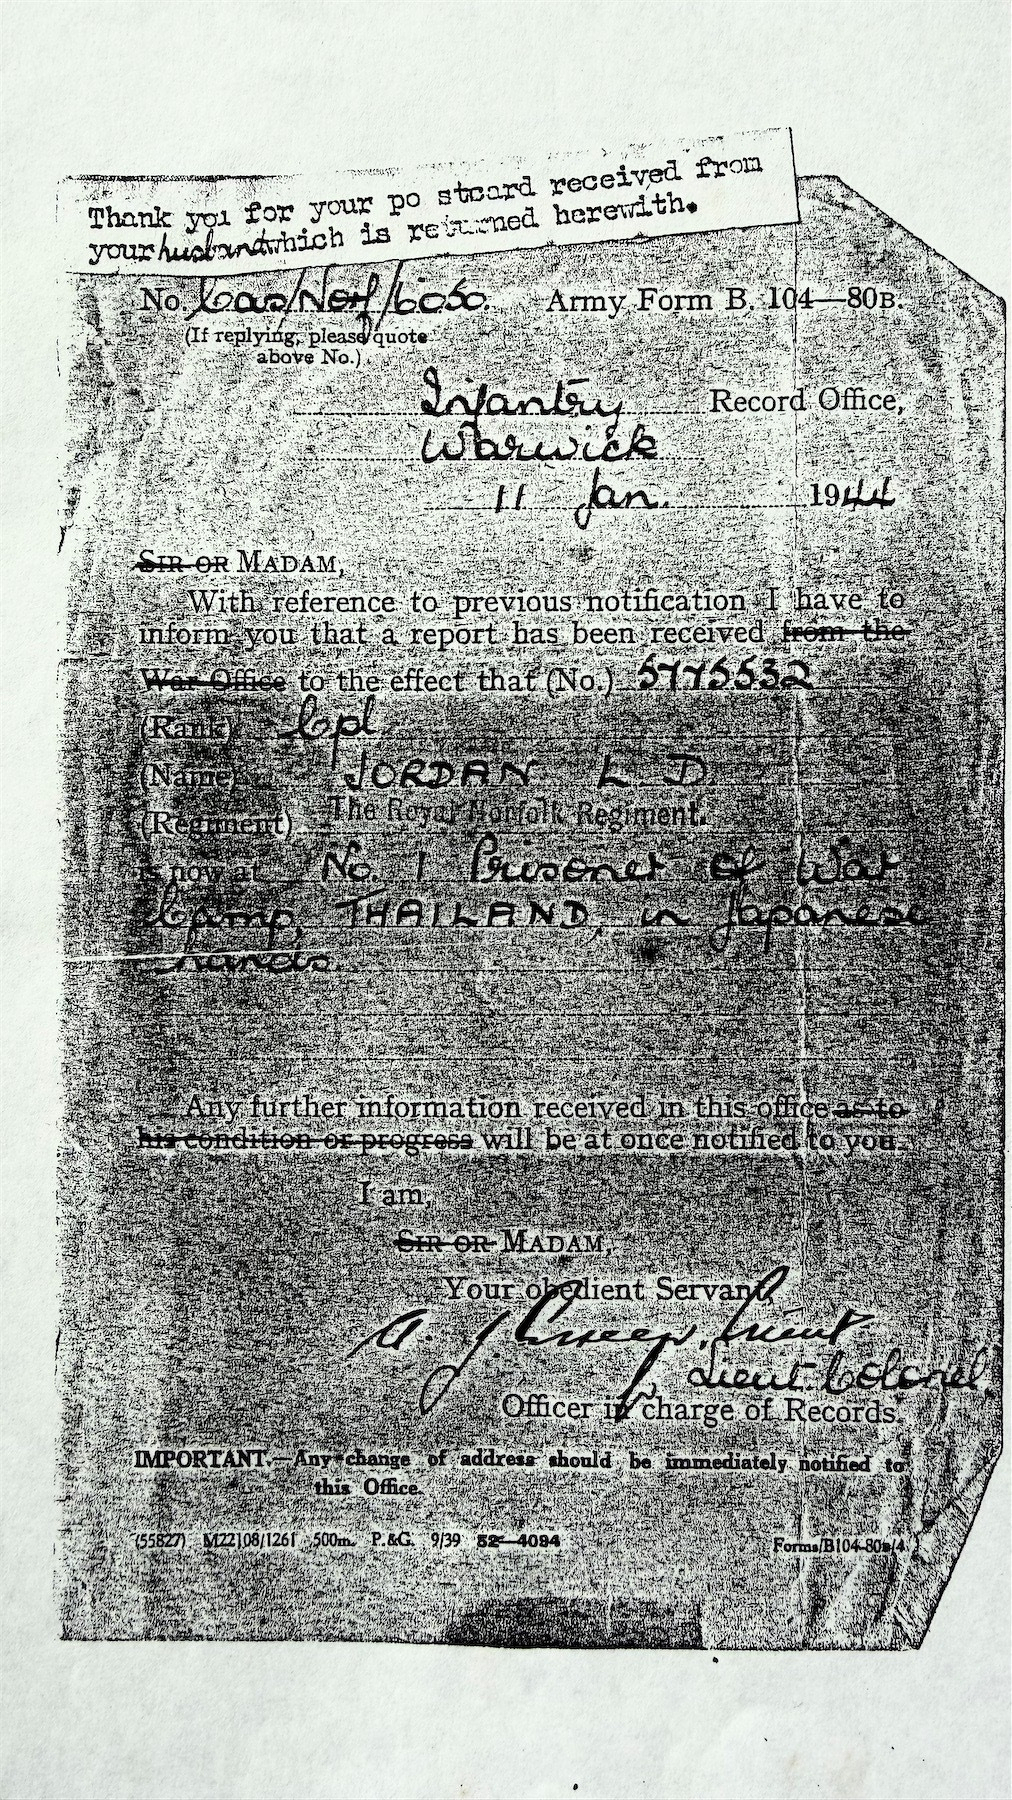 Thank you for your po stcard received from
your husband which is returned herewith.
No. Cas/Norf/6050. Army Form B. 104—80B.
(If replying, please quote
above No.)
Infantry Record Office,
Warwick
11 Jan. 1944
SIR OR MADAM,
With reference to previous notification I have to
inform you that a report has been received from the
War Office to the effect that (No.) 5775532
(Rank) Cpl
(Name) JORDAN L D
(Regiment) The Royal Norfolk Regiment.
is now at No. 1 Prisoner of War
Camp, THAILAND, in Japanese
hands.
Any further information received in this office as to
his condition or progress will be at once notified to you.
I am,
SIR OR MADAM,
Your obedient Servant
Lieut. Colonel
Officer in charge of Records.
IMPORTANT.—Any change of address should be immediately notified to
this Office.
(55827) M22108/1261 500m. P.&G. 9/39 52—4094 Forms/B104-80B/4